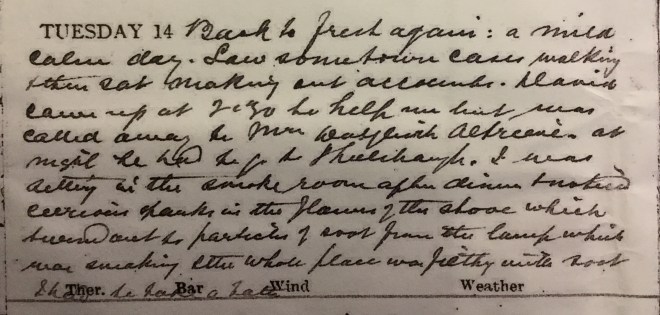 TUESDAY 14 Back to fresh again: a mild
calm day. Saw some town cases walking
& then sat making out accounts. David
came up at 2.30 to help me but was
called away to Mrs Dalgleish at
night he had to go to . I was
sitting in the smoke room after dinner & noticed
curious sparks in the flames of the stove which
turned out to particles of soot from the lamp which
was smoking & the whole place was filthy with soot
I had to take a bath
Ther. Bar Wind Weather